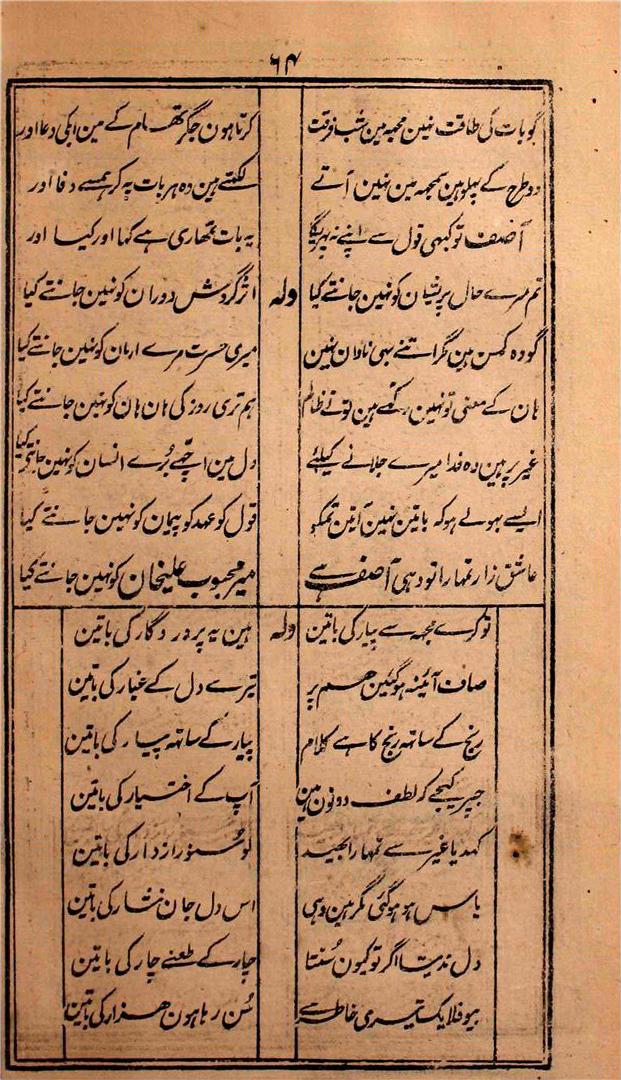 ۶۴
گو بات کی طاقت نہین مجھہ مین شب فرقت کرتا ہون جگر تھام کے مین ابکی دعا اور
دو طرح کے پہلو ہین سمجہہ مین نہین آتے لکھتے ہین وہ ہر بات پہ کر ہمسے دفا اور
آصف تو کبھی قول سے اپنے نہ پہریگا یہ بات تمھاری ہے کہا اور کیا اور
تم مرے حال پریشان کو نہین جانتے کیا ولہ اثر گردش دوران کو نہین جانتے کیا
گو وہ کمسن ہین مگر اتنے بہی نادان نہین میری حسرت مرے ارمان کو نہین جانتے کیا
ہان کے معنی تو نہین رکھے ہین تو نے ظالم ہم تری روز کی ہان ہان کو نہین جانتے کیا
غیر پر ہین وہ فدا میرے جلانے کیلئے دل مین اچھے بُرے انسان کو نہین جانتے کیا
ایسے بھولے ہو کہ باتین نہین آتین تمکو قول کو عہد کو پیمان کو نہین جانتے کیا
عاشق زار تمہارا تو وہی آصف ہے میر محبوب علیخان کو نہین جانتے کیا
تو کرے مجھہ سے پیار کی باتین ولہ ہین یہ پروردگار کی باتین
صاف آئینہ ہو گئین ہم پر تیرے دل کے غبار کی باتین
رنج کے ساتھ رنج کا ہے کلام پیار کے ساتھ پیار کی باتین
جبر کیجے کہ لطف دونون ہین آپ کے اختیار کی باتین
کہدیا غیر سے تمہارا بھید لو سنو رازدار کی باتین
یاس ہو ہو گئی مگر ہین وہی اس دل جان نثار کی باتین
دل ندیتا اگر تو کیون سُنتا چار کے طعنے چار کی باتین
بیوفا ایک تیری خاطر سے سُن رہا ہون ہزار کی باتین